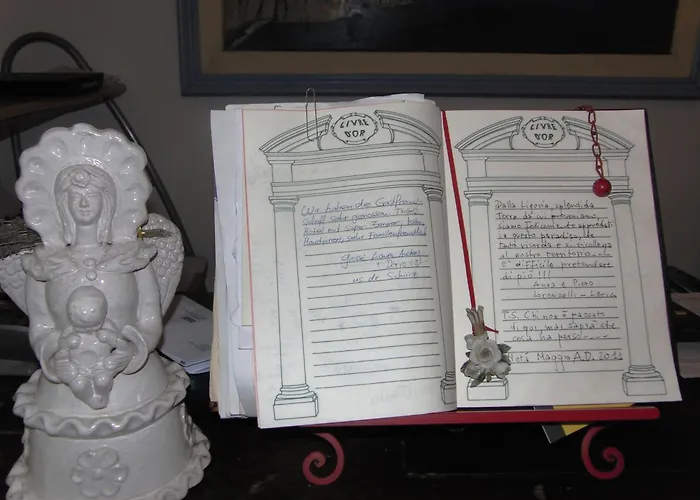 LIVRE
D'OR
Wir haben die Gastfreund-
schaft sehr genossen. Tolles
Hotel mit super Zimmer, tollen
Haustieren, sehr Familienfreundlich!
aus der Schweiz
LIVRE
D'OR
Dalla Liguria, splendida
Terra da cui proveniamo,
siamo felicemente approdati
in questo paradiso, che
tanto ricorda e si ricollega
al nostro territorio
E' difficile pretendere
di più !!!
Anna e Piero
P.S. Chi non è passato
di qui, mai saprà che
cosa ha perso
Noti Maggio A.D. 2011